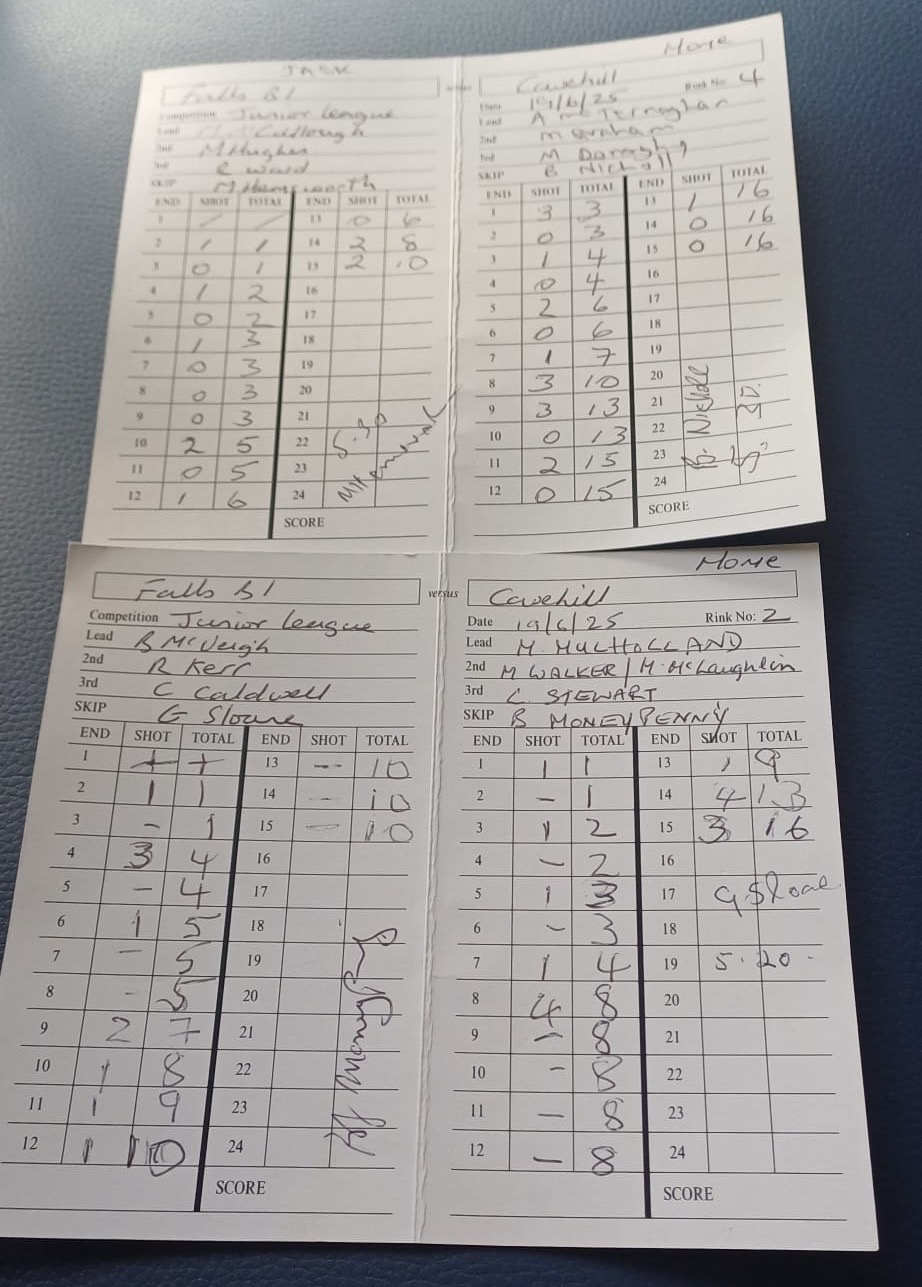 JACK
Home
Falls B1 versus Cavehill
Competition Junior League
Date 19/6/25 Rink No: 4
Lead McCullough
Lead A McTernaghan
2nd M Hughes
2nd M Graham
3rd R Ward
3rd M Donaghy
SKIP M Hemsworth
SKIP B Nicholl
END SHOT TOTAL END SHOT TOTAL
END SHOT TOTAL END SHOT TOTAL
1 / / 13 0 6
1 3 3 13 1 16
2 1 1 14 2 8
2 0 3 14 0 16
3 0 1 15 2 10
3 1 4 15 0 16
4 1 2 16
4 0 4 16
5 0 2 17
5 2 6 17
6 1 3 18
6 0 6 18
7 0 3 19
7 1 7 19
8 0 3 20
8 3 10 20
9 0 3 21
9 3 13 21
10 2 5 22 5.30
10 0 13 22
11 0 5 23
11 2 15 23
12 1 6 24
12 0 15 24
Nicholl
SCORE
SCORE
Home
Falls B1 versus Cavehill
Competition Junior League
Date 19/6/25 Rink No: 2
Lead B McVeigh
Lead M. MULHOLLAND
2nd R Kerr
2nd M WALKER / M. McLaughlin
3rd C Caldwell
3rd C STEWART
SKIP G Sloane
SKIP B MONEYPENNY
END SHOT TOTAL END SHOT TOTAL
END SHOT TOTAL END SHOT TOTAL
1 + + 13 — 10
1 1 1 13 1 9
2 1 1 14 — 10
2 – 1 14 4 13
3 – 1 15 — 10
3 1 2 15 3 16
4 3 4 16
4 – 2 16
5 – 4 17
5 1 3 17 G Sloane
6 1 5 18
6 – 3 18
7 – 5 19
7 1 4 19 5.20
8 – 5 20
8 4 8 20
9 2 7 21
9 – 8 21
10 1 8 22
10 – 8 22
11 1 9 23
11 — 8 23
12 1 10 24
12 – 8 24
SCORE
SCORE